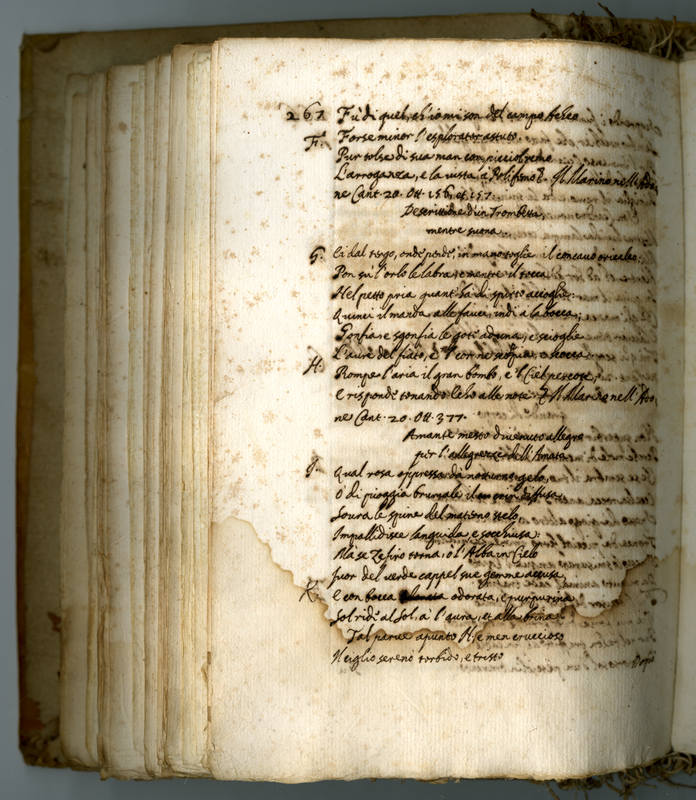 261 Fù di quel, ch'io mi son del campo Acheo
F. Forse minor l'esplorator astuto.
Pur tolse di sua man con picciol remo
L'arroganza, e la vista, à Polifemo. Il Marino nell'Ado
ne Cant. 20. Ott. 156. et 157.
Descrittione d'un Trombetta,
mentre suona.
G. Ei dal tergo, onde pende, in mano toglie il concavo oricalco:
Pon su l'orlo le labra, e mentre il tocca
Nel petto pria quant'hà di spirto accoglie:
Quinci il manda alle fauci, indi à la bocca;
Gonfia, e sgonfia le gote aduna, e scioglie
L'aure del fiato, e 'l corno scoppia, e scocca.
H. Rompe l'aria il gran bombo, e 'l Ciel percote,
E risponde tonando l'Echo alle note. Il Marino nell'Ado
ne Cant. 20. Ott. 377.
Amante mesto divenuto allegro
per l'allegrezze dell'Amata.
J. Qual rosa oppressa da notturno gelo,
O di pioggia brumale il diffusa,
Soura le spine del materno stelo
Impallidisce languida, e socchiusa:
Mà se Zefiro torna, o l'Alba in Cielo
Fuor del verde cappel sue gemme accusa,
K. E con bocca odorata, e purpurina
Sol ride al Sol, à l'aura, et alla brina.
Tal parve apunto Il, e men cruccioso
Il ciglio serenò torbido, e tristo
Dopò